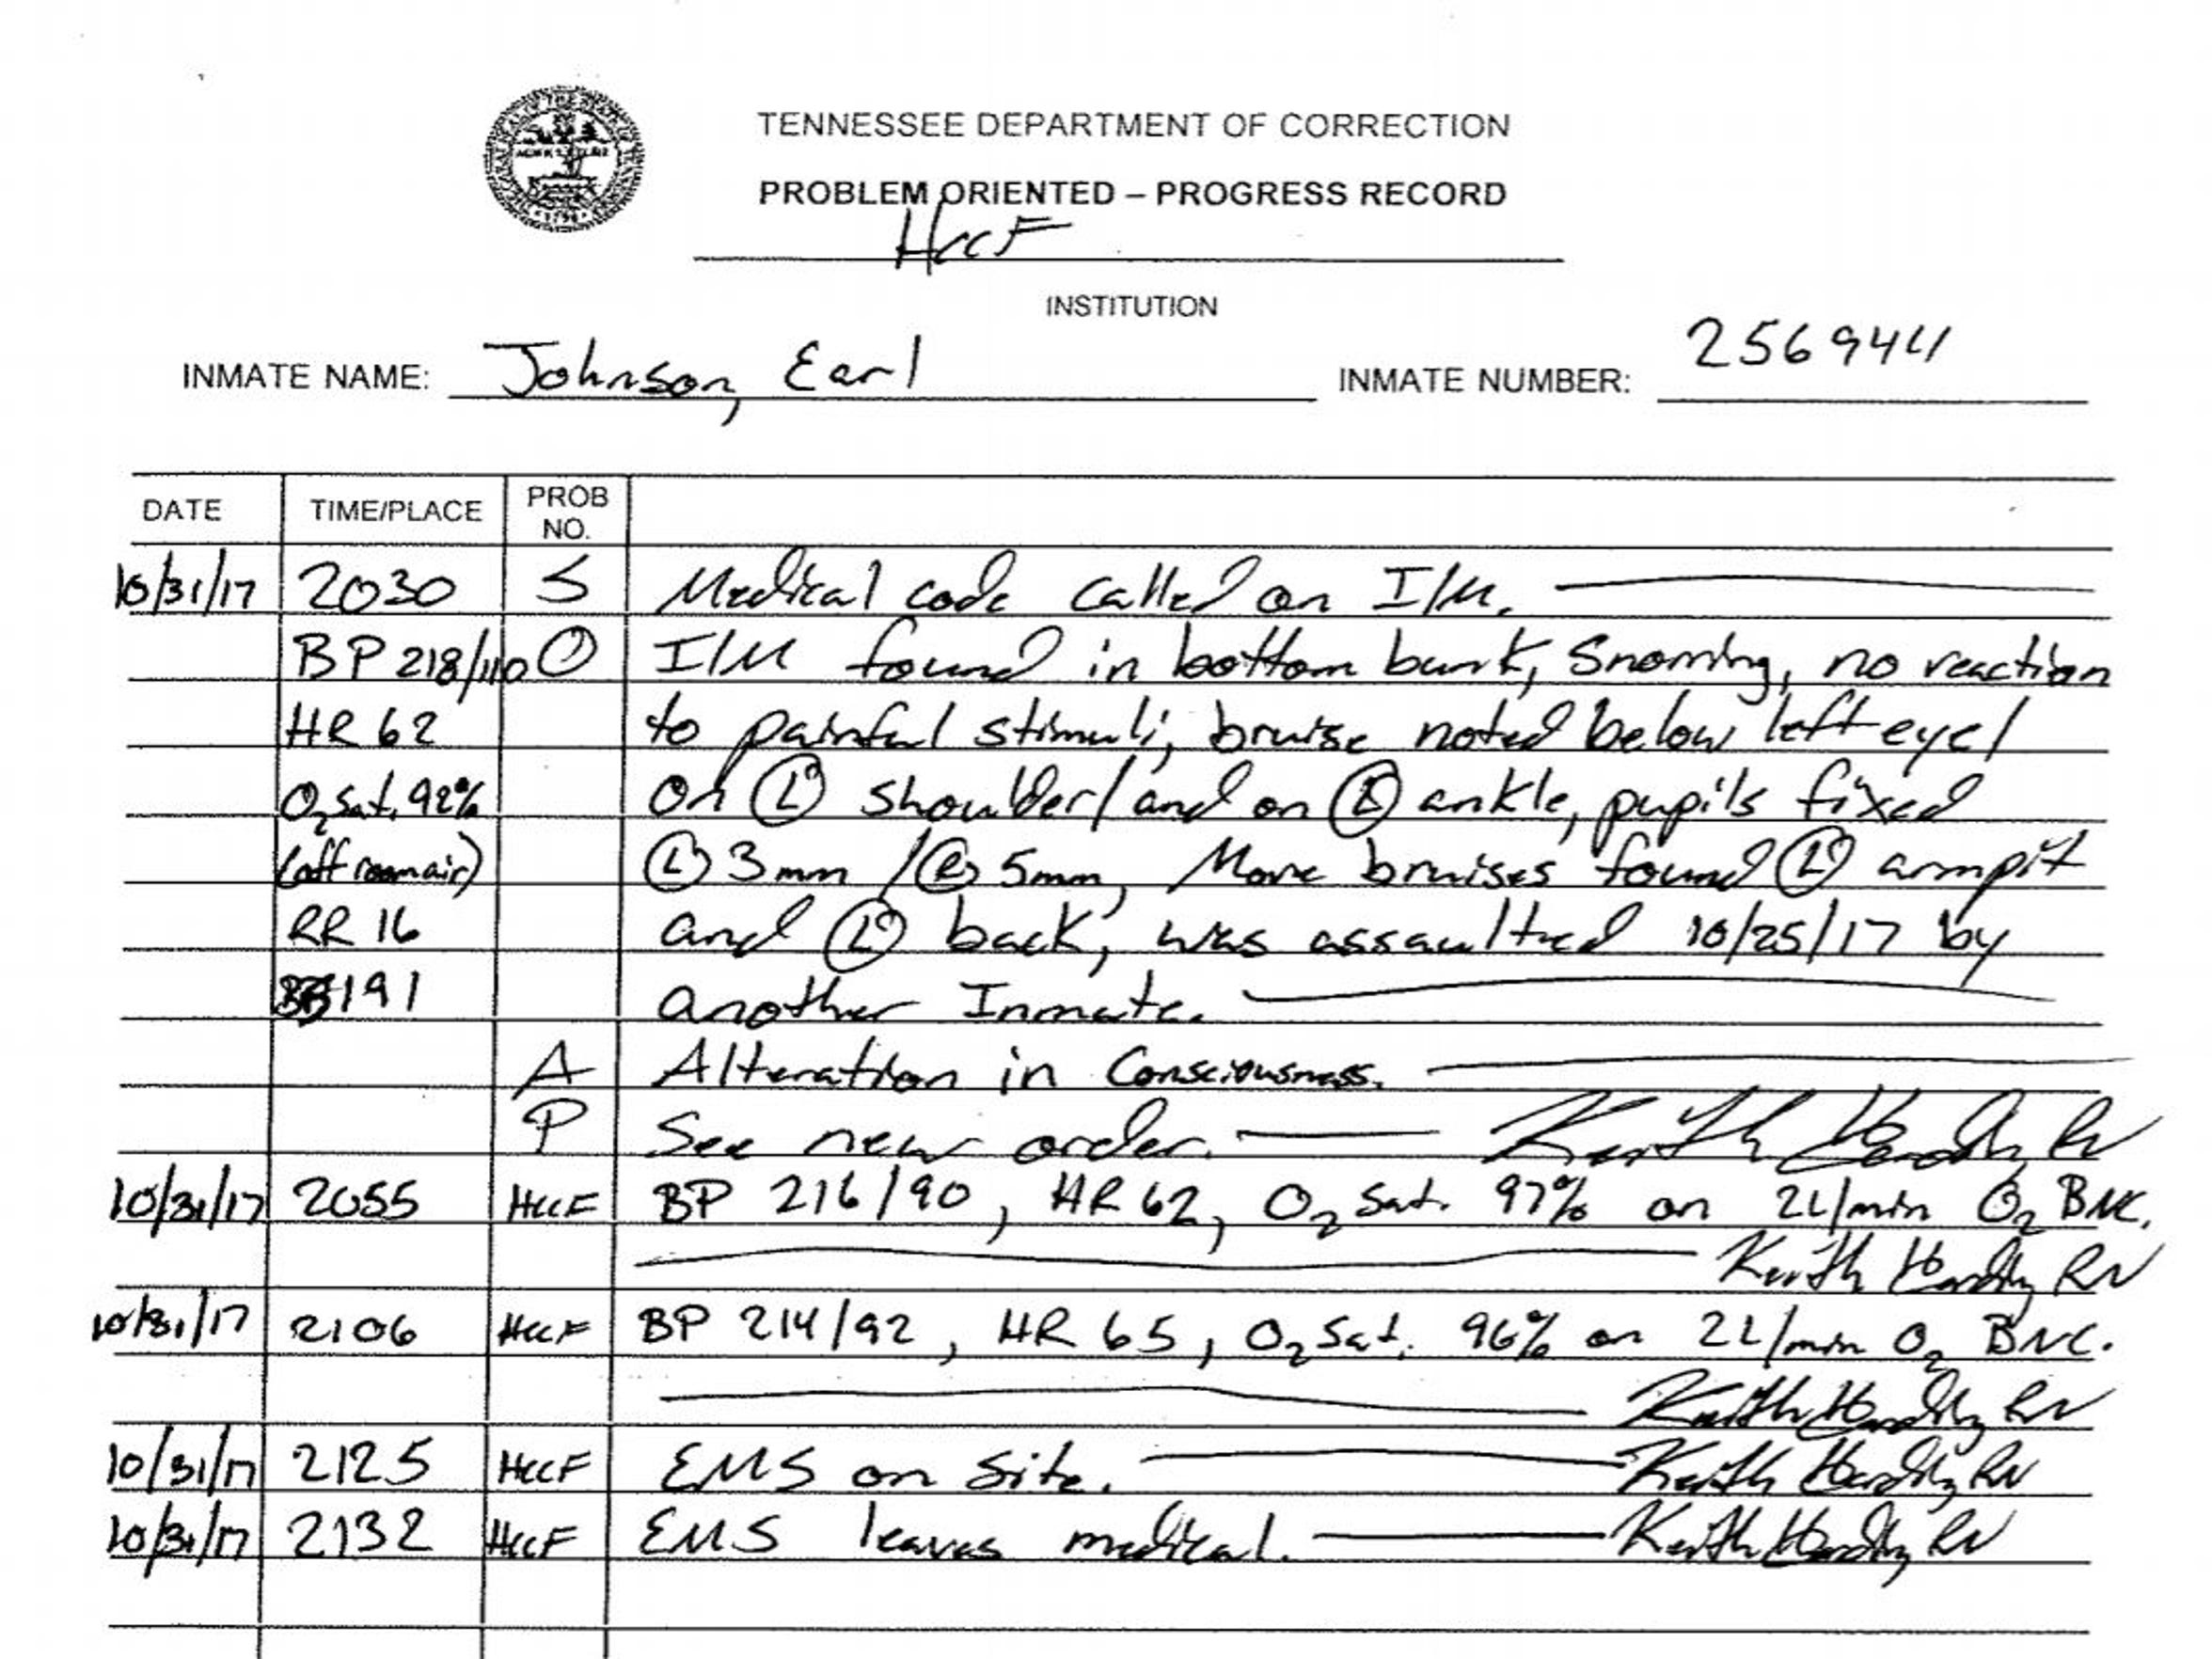 TENNESSEE DEPARTMENT OF CORRECTION
PROBLEM ORIENTED – PROGRESS RECORD
HCCF
INSTITUTION
INMATE NAME: Johnson, Earl INMATE NUMBER: 256944
DATE TIME/PLACE PROB NO.
10/31/17 2030 S Medical code called on I/M.
BP 218/110 O I/M found in bottom bunk, snorring, no reaction
HR 62 to painful stimuli, bruise noted below left eye/
O2 Sat. 92% on (L) shoulder/and on ankle, pupils fixed
(off room air) (L) 3mm /(R) 5mm, More bruises found (L) armpit
RR 16 and (L) back, was assaulted 10/25/17 by
191 another Inmate.
A Alteration in Consciousness.
P See new order. Keith Hardy RN
10/31/17 2055 HCCF BP 216/90, HR 62, O2 Sat. 97% on 2L/min O2 BNC.
Keith Hardy RN
10/31/17 2106 HCCF BP 214/92, HR 65, O2 Sat. 96% on 2L/min O2 BNC.
Keith Hardy RN
10/31/17 2125 HCCF EMS on site. Keith Hardy RN
10/31/17 2132 HCCF EMS leaves medical. Keith Hardy RN